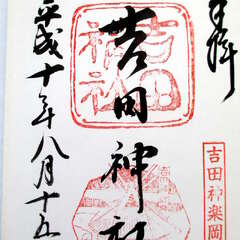 奉拝
吉田神楽岡
吉田神社
吉田神社
平成十年八月十五